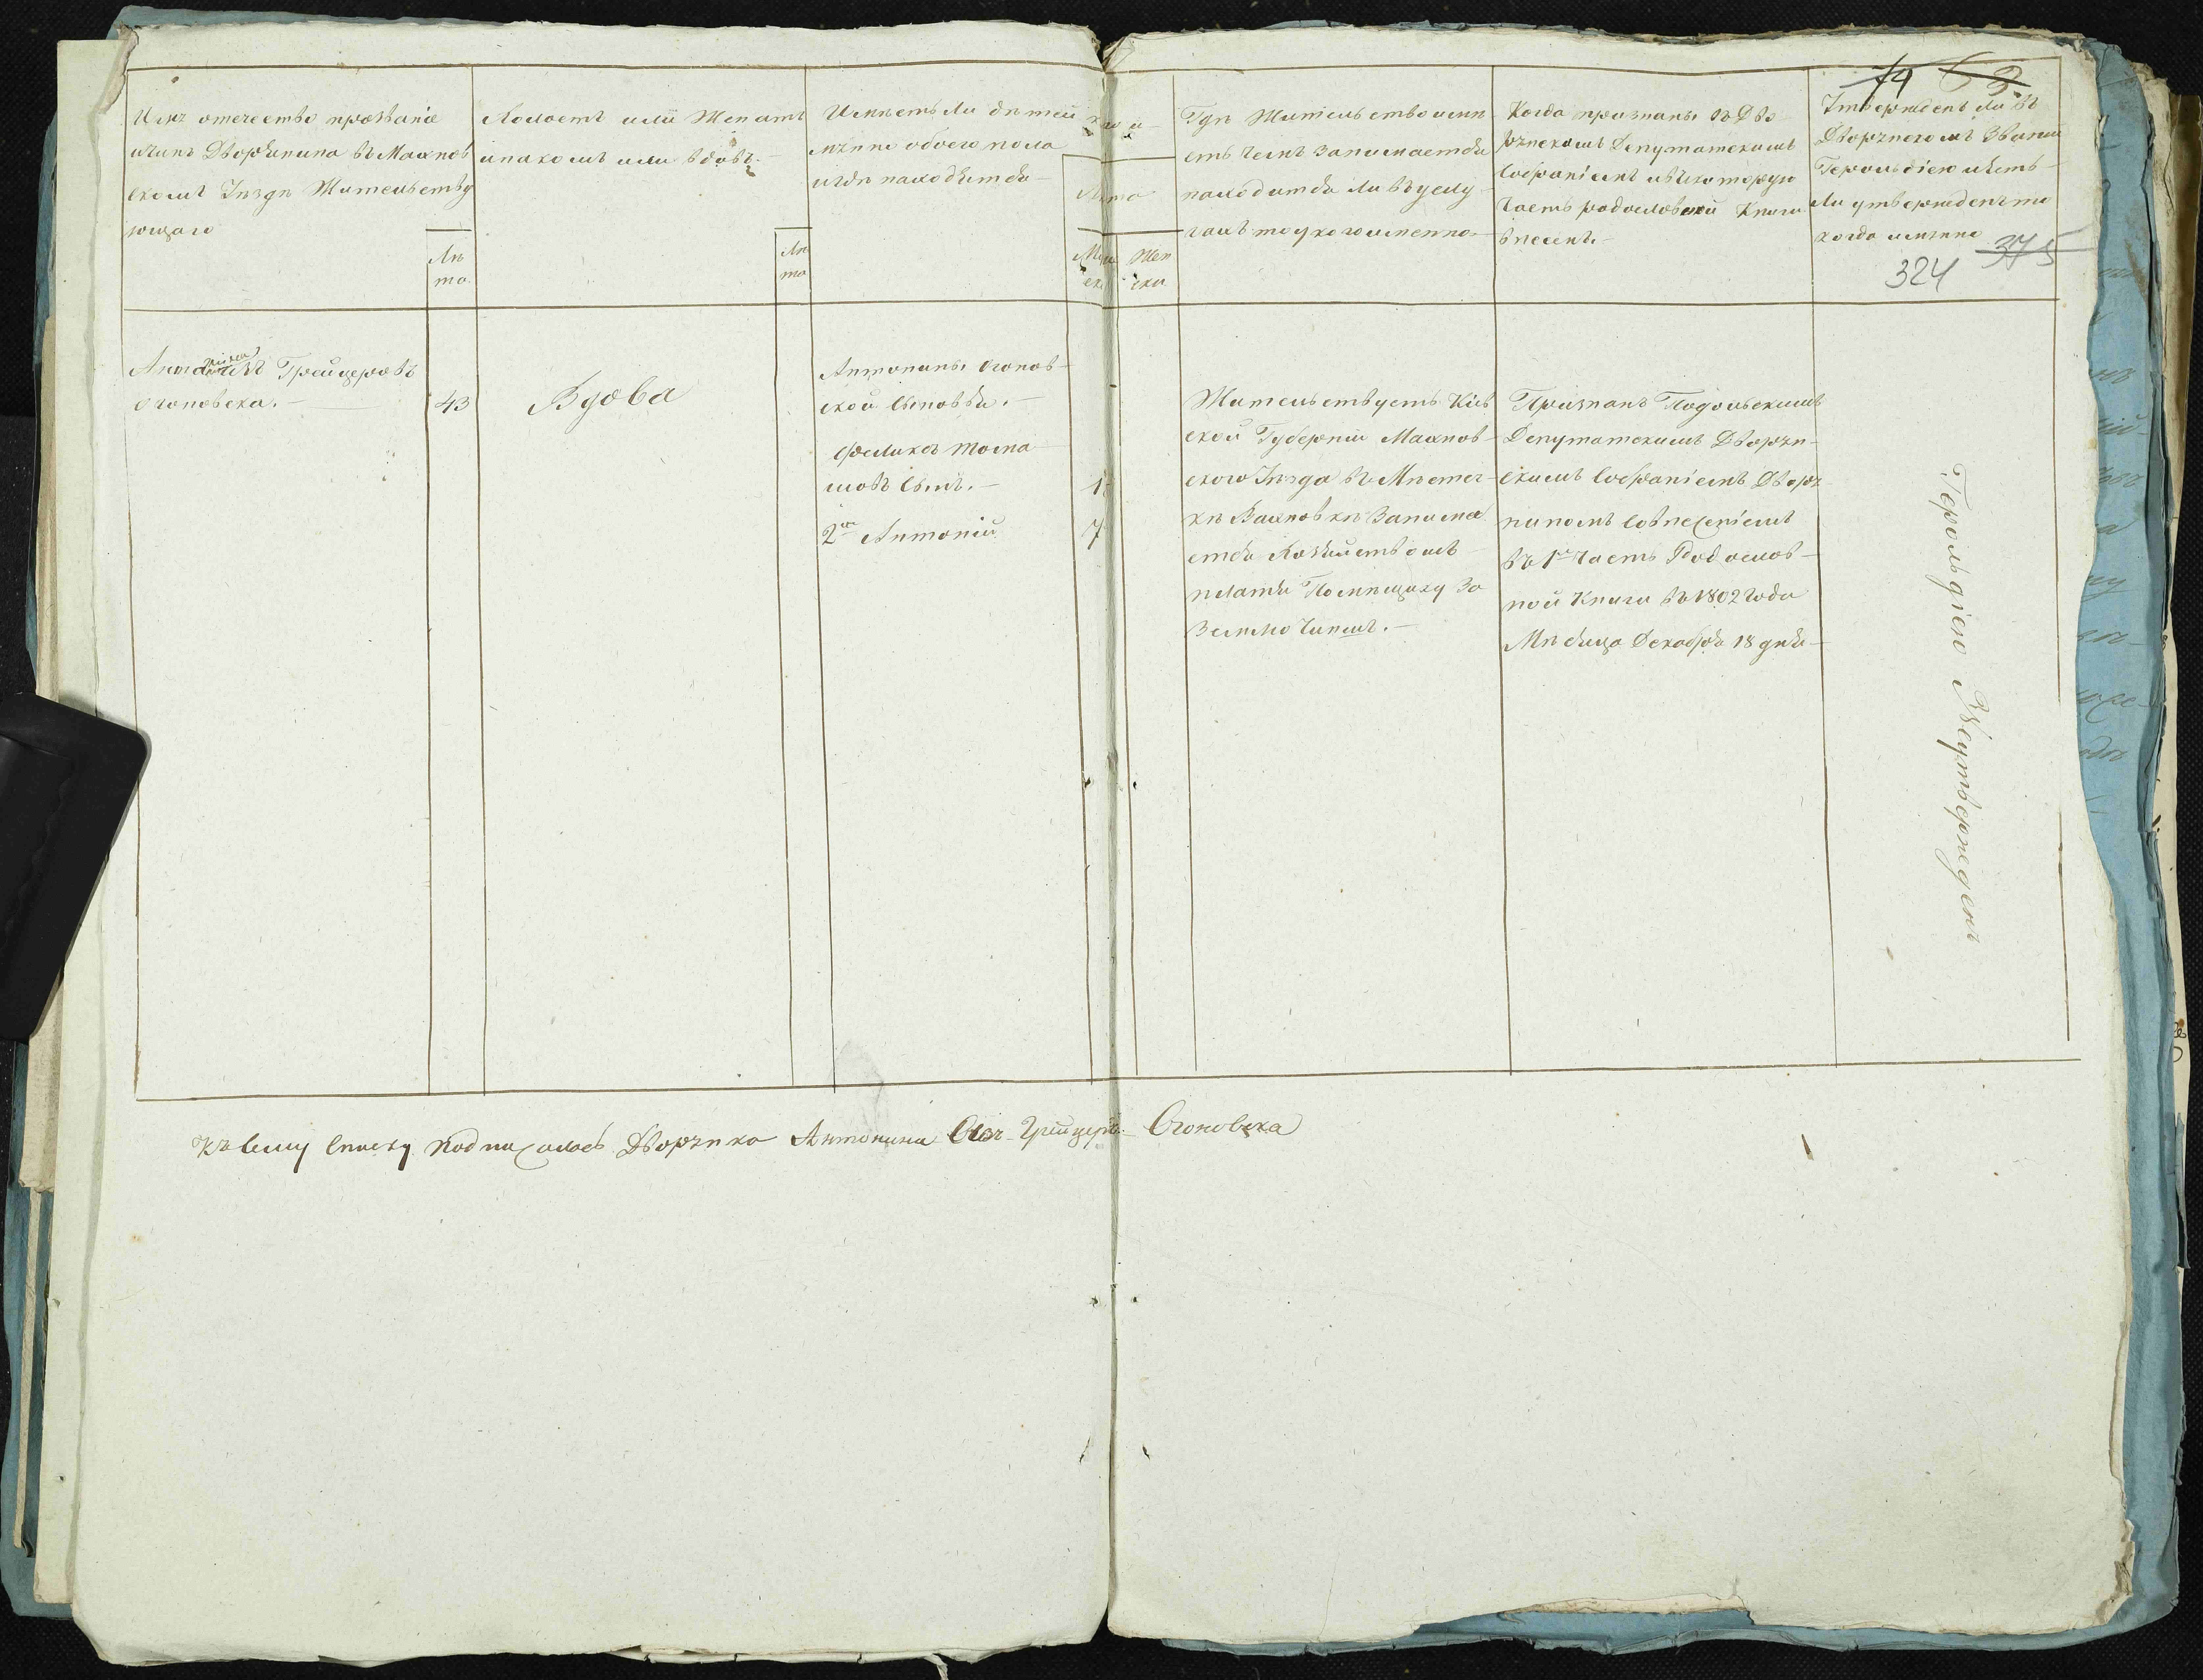 Имя отечество прозваніе
ичинъ Дворянина въ Махнов
скомъ Уѣздѣ Жительству
ющаго
Лѣ
та
Холостъ или Женатъ
инакомъ или вдовъ
Лѣ
та
Имѣетъ ли дѣтей
мянно обоего пола
игдѣ находятся
Лѣта
Муж
ска
Жен
ска
Гдѣ Жительство имѣ
етъ чемъ Занимается
находится ли въ услу
гахъ то у кого именно
Когда признаны въ Дво
рянскомъ Депутатскимъ
Собраніемъ ивъ которую
Часть родословной Книги
внесенъ.
74 63
Утвержденъ ли въ
Дворянскомъ Званіи
Герольдіею иесть
ли утвержденъ то
когда имянно
375
324
Грейцеровъ
Огоновска.
43
Вдова
Антонины Огонов
ской Сыновья.
Феликсъ Тома
шовъ Сынъ.
2й Антоній
7
Жительствуетъ Кіев
ской Губерніи Махнов
скаго Уѣзда въ Мѣстеч
кѣ Вахновкѣ Занима
ется Хозяйствомъ
платя Помѣщику За
Землю Чиншъ.
Признанъ Подольскимъ
Депутатскимъ Дворян
скимъ Собраніемъ Дворя
ниномъ Совнесеніемъ
въ 1ю Часть Родослов
ной Книги въ 1802 Года
Мѣсяца Декабря 18 дня
Герольдіею Неутвержденъ
Къ сему списку подписалась Дворянка Антонина Грейцеръ Огоновска